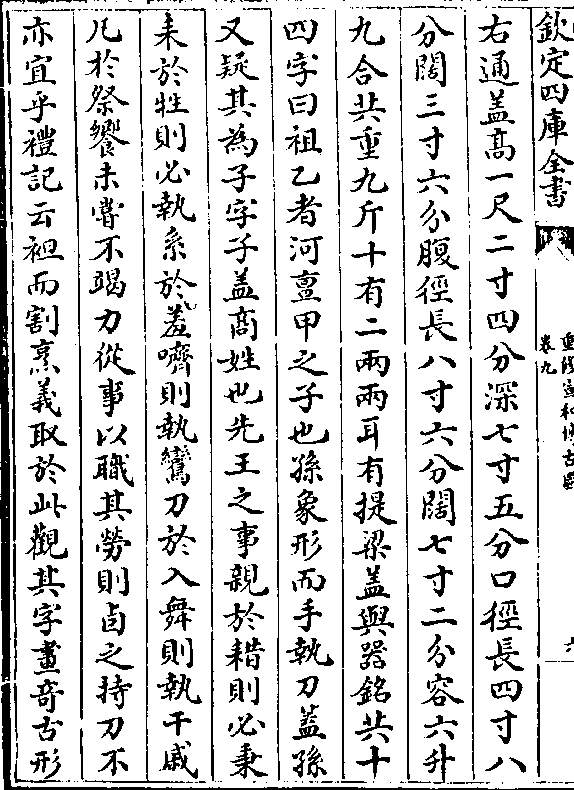 欽定四庫全書
重修宣和博古圖
卷九
六
右通盖髙一尺二寸四分深七寸五分口徑長四寸八
分闊三寸六分腹徑長八寸六分闊七寸二分容六升
九合共重九斤十有二兩兩耳有提梁盖與器銘共十
四字曰祖乙者河亶甲之子也孫象形而手執刀蓋孫
又疑其為子字子盖商姓也先王之事親於耤則必秉
耒於牲則必執系於羞嚌則執鸞刀於入舞則執干戚
凡於祭饗未嘗不竭力從事以職其勞則卣之持刀不
亦宜乎禮記云袒而割烹義取於此觀其字畫奇古形